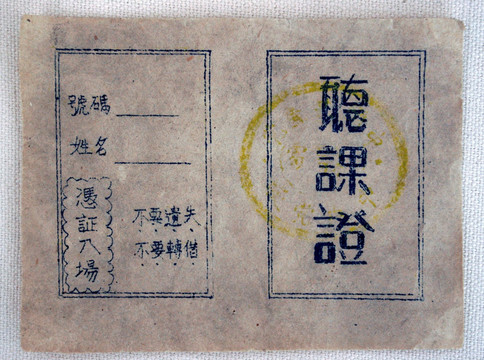 聽課證
號碼
姓名
憑証入場
不要遺失
不要轉借